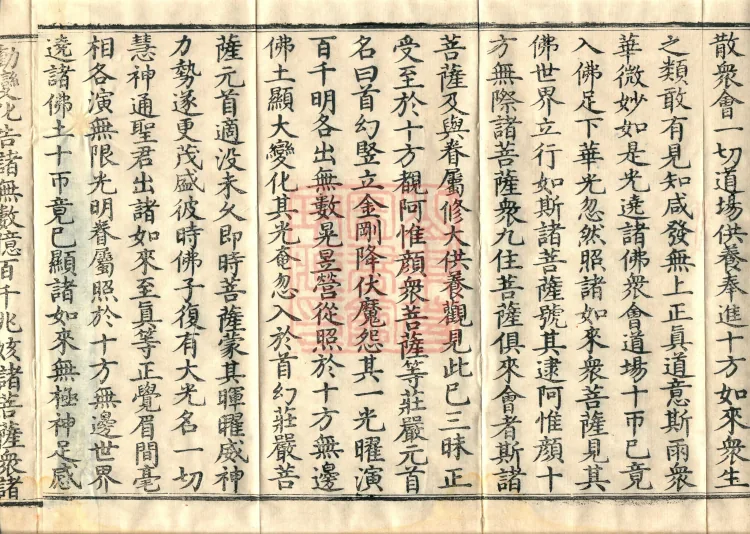 散衆會一切道場供養奉進十方如來衆生
之類敢有見知咸發無上正眞道意斯雨衆
華微妙如是光遶諸佛衆會道場十帀已竟
入佛足下華光忽然照諸如來衆菩薩見其
佛世界立行如斯諸菩薩號其逮阿惟顔十
方無際諸菩薩衆九住菩薩俱來會者斯諸
菩薩及與眷屬修大供養觀見此已三昧正
受至於十方覩阿惟顔衆菩薩等莊嚴元首
名曰首幻竪立金剛降伏魔怨其一光曜演
百千明各出無數晃昱營從照於十方無邊
佛土顯大變化其光奄忽入於首幻莊嚴菩
薩元首適没未久即時菩薩蒙其暉曜威神
力勢遂更茂盛彼時佛子復有大光名一切
慧神通聖君出諸如來至眞等正覺眉間毫
相各演無限光明眷屬照於十方無邊世界
遶諸佛土十帀竟已顯諸如來無極神足感
動變化告諸無數億百千兆姟諸菩薩衆諸